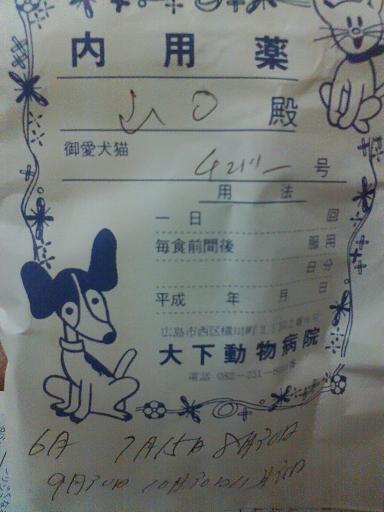 内用薬
山口 殿
御愛犬猫
号
用法
一日 回
毎食前間後 服用
日分
平成 年 月 日
広島市西区横川町
大下動物病院
電話 082-231-
6月 7月15日 8月30日
9月30日 10月30日 11月30日